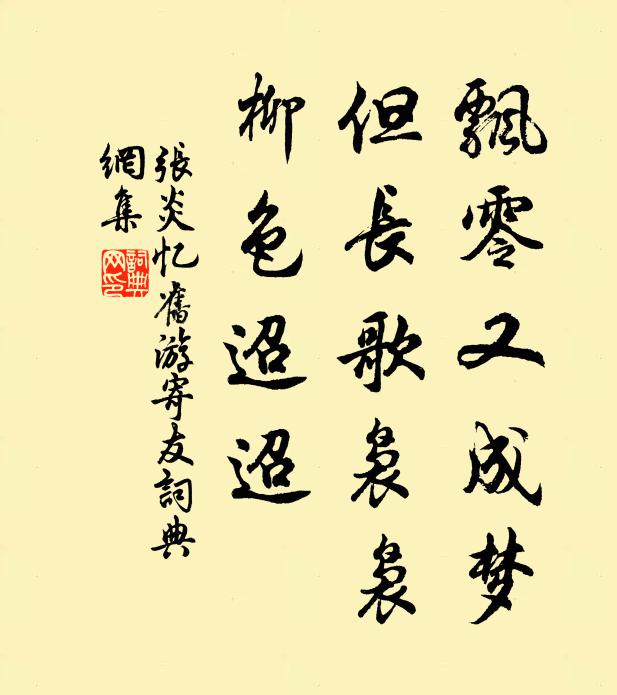 飄零又成梦
但長歌裊裊
柳色迢迢
張炎忆舊游寄友詞典
網集
詞典
网印